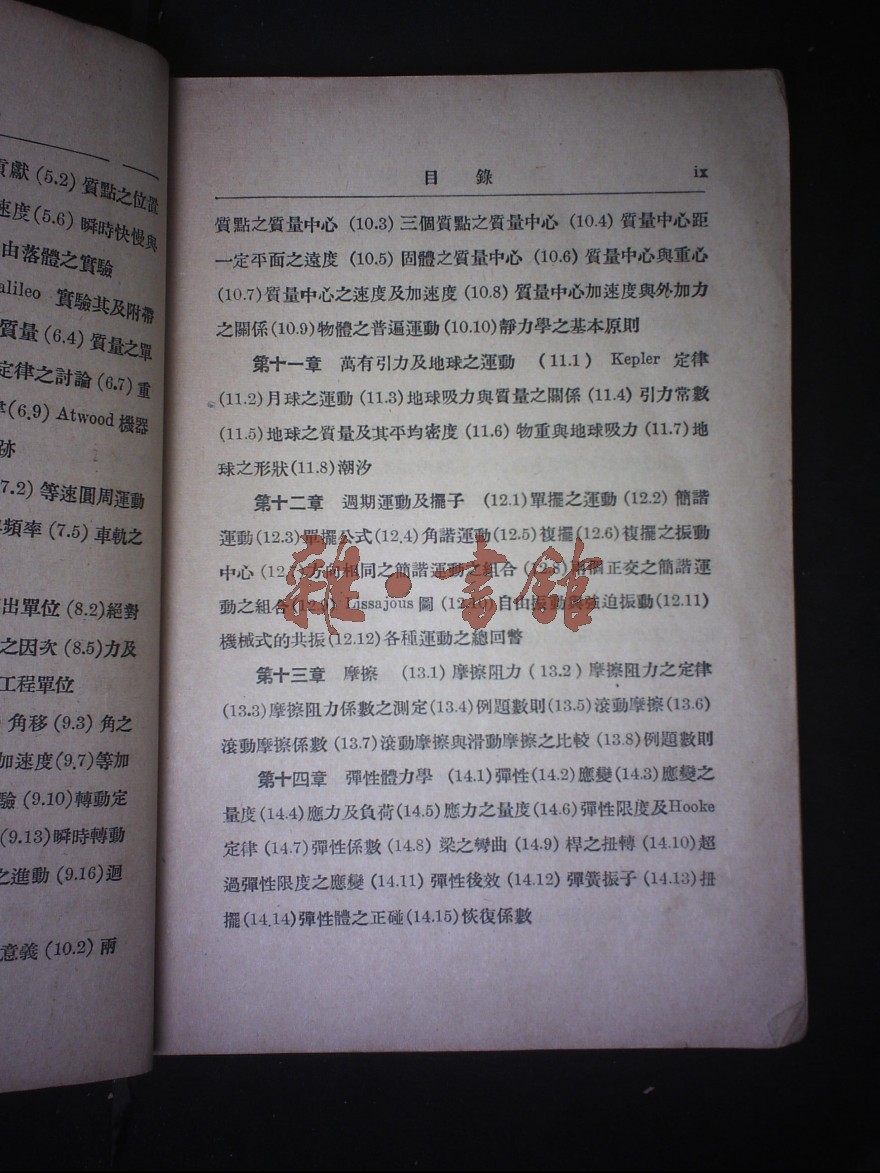 貢獻 (5.2) 質點之位置
速度(5.6) 瞬時快慢與
由落體之實驗
alileo 實驗其及附帶
質量 (6.4) 質量之單
定律之討論 (6.7) 重
(6.9) Atwood 機器
跡
7.2) 等速圓周運動
頻率 (7.5) 車軌之
出單位 (8.2)絕對
之因次 (8.5)力及
工程單位
角移 (9.3) 角之
加速度(9.7)等加
驗 (9.10)轉動定
(9.13)瞬時轉動
之進動 (9.16)迴
意義 (10.2) 兩
目錄 ix
質點之質量中心 (10.3) 三個質點之質量中心 (10.4) 質量中心距
一定平面之遠度 (10.5) 固體之質量中心 (10.6) 質量中心與重心
(10.7)質量中心之速度及加速度 (10.8) 質量中心加速度與外加力
之關係 (10.9)物體之普遍運動 (10.10)靜力學之基本原則
第十一章 萬有引力及地球之運動 (11.1) Kepler 定律
(11.2)月球之運動 (11.3)地球吸力與質量之關係 (11.4) 引力常數
(11.5)地球之質量及其平均密度 (11.6) 物重與地球吸力 (11.7)地
球之形狀(11.8)潮汐
第十二章 週期運動及擺子 (12.1)單擺之運動 (12.2) 簡諧
運動(12.3)單擺公式(12.4)角諧運動(12.5)複擺(12.6)複擺之振動
中心 (12.7)方向相同之簡諧運動之組合 (12.8)兩個正交之簡諧運
動之組合(12.9) Lissajous 圖 (12.10)自由振動與強迫振動(12.11)
機械式的共振(12.12)各種運動之總回瞥
第十三章 摩擦 (13.1)摩擦阻力 (13.2) 摩擦阻力之定律
(13.3)摩擦阻力係數之測定(13.4)例題數則(13.5)滾動摩擦(13.6)
滾動摩擦係數 (13.7)滾動摩擦與滑動摩擦之比較 (13.8)例題數則
第十四章 彈性體力學 (14.1)彈性(14.2)應變(14.3)應變之
量度(14.4)應力及負荷(14.5)應力之量度(14.6)彈性限度及Hooke
定律 (14.7)彈性係數 (14.8) 梁之彎曲 (14.9) 桿之扭轉 (14.10)超
過彈性限度之應變 (14.11) 彈性後效 (14.12) 彈簧振子 (14.13)扭
擺(14.14)彈性體之正碰(14.15)恢復係數
雜·書館